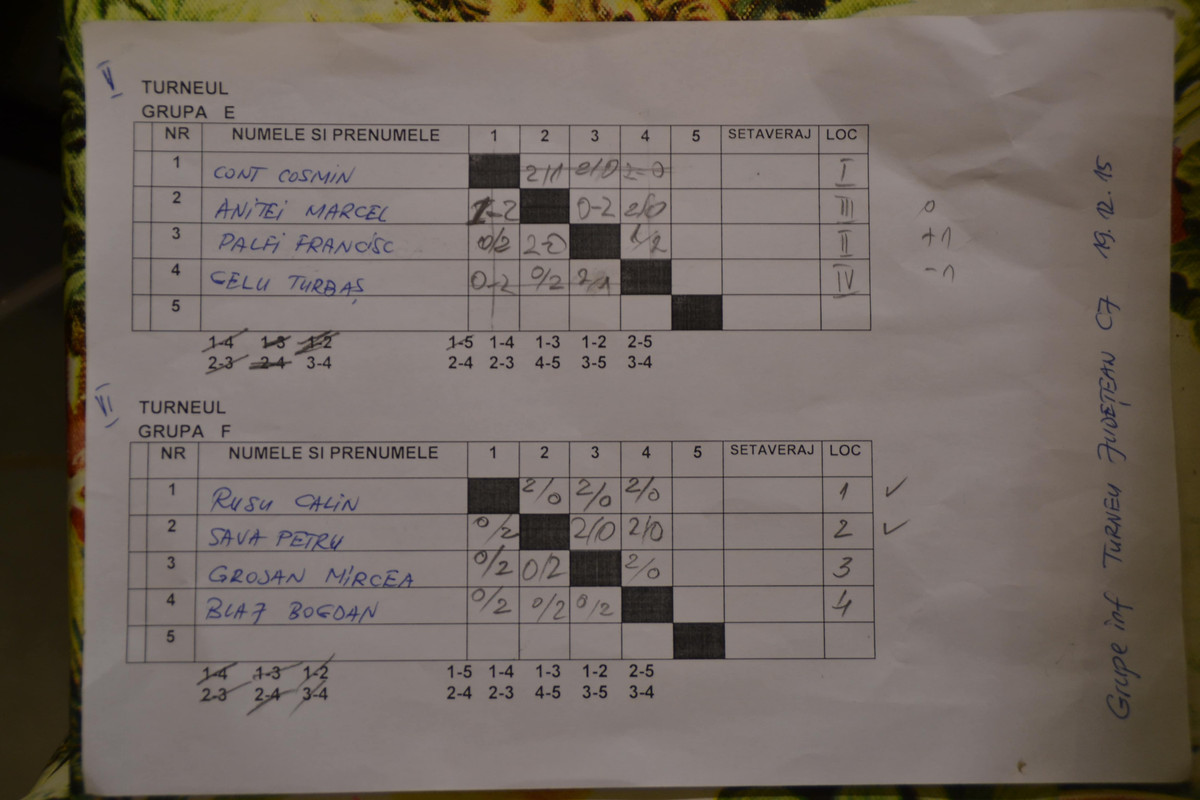 V
TURNEUL
GRUPA E
NR NUMELE SI PRENUMELE 1 2 3 4 5 SETAVERAJ LOC
1 CONT COSMIN 2/1 2/0 2-0 I
2 ANITEI MARCEL 1-2 0-2 2/0 III 0
3 PALFI FRANCISC 0/2 2-0 1/2 II +1
4 GELU TURBAȘ 0-2 0/2 2/1 IV -1
5
1-4 1-3 1-2 1-5 1-4 1-3 1-2 2-5
2-3 2-4 3-4 2-4 2-3 4-5 3-5 3-4
VI
TURNEUL
GRUPA F
NR NUMELE SI PRENUMELE 1 2 3 4 5 SETAVERAJ LOC
1 RUSU CALIN 2/0 2/0 2/0 1 ✓
2 SAVA PETRU 0/2 2/0 2/0 2 ✓
3 GROJAN MIRCEA 0/2 0/2 2/0 3
4 BLAJ BOGDAN 0/2 0/2 0/2 4
5
1-4 1-3 1-2 1-5 1-4 1-3 1-2 2-5
2-3 2-4 3-4 2-4 2-3 4-5 3-5 3-4
Grupe inf TURNEU JUDEȚEAN C7 19.12.15